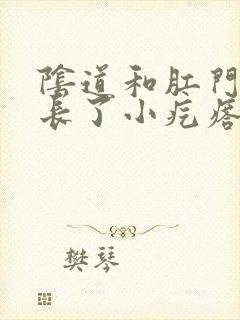 陰道和肛門
長了小疙瘩
樊琴